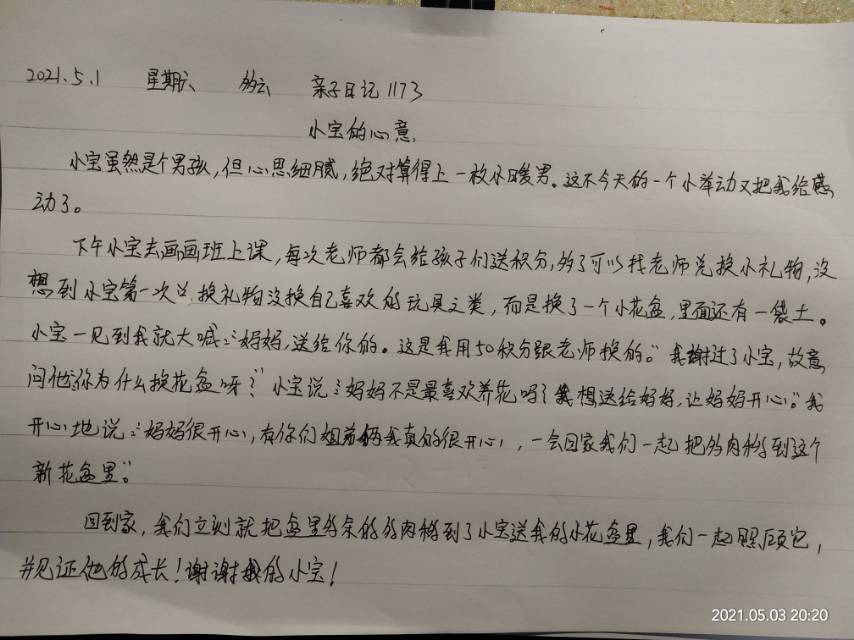 2021.5.1 星期六 多云 亲子日记1173
小宝的心意
小宝虽然是个男孩,但心思细腻,绝对算得上一枚小暖男。这不今天的一个小举动又把我给感
动了。
下午小宝去画画班上课,每次老师都会给孩子们送积分,够了可以找老师兑换小礼物,没
想到小宝第一次兑换礼物没换自己喜欢的玩具之类,而是换了一个小花盆,里面还有一袋土。
小宝一见到我就大喊:“妈妈,送给你的。这是我用50积分跟老师换的。”我谢过了小宝,故意
问他:“你为什么换花盆呀?”小宝说:“妈妈不是最喜欢养花吗?我想送给妈妈,让妈妈开心。”我
开心地说:“妈妈很开心,有你们姐弟俩我真的很开心,一会回家我们一起把多肉移到这个
新花盆里。”
回到家,我们立刻就把盆里多余的多肉移到了小宝送我的小花盆里,我们一起照顾它,
并见证他的成长!谢谢我的小宝!
2021.05.03 20:20